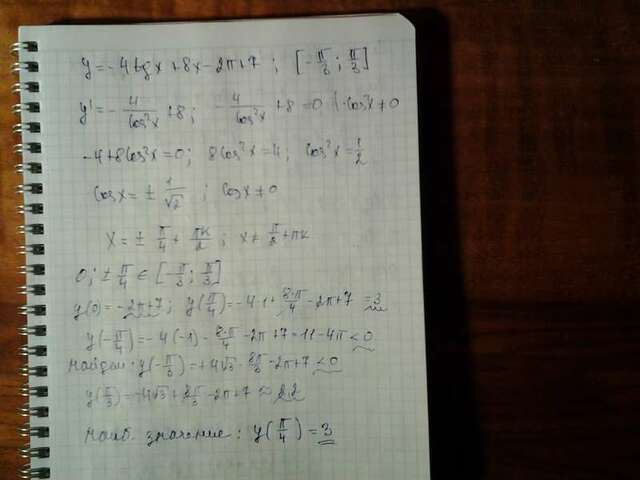 y=-4tgx+8x-2π+7; [-π/3; π/3]
y'=-4/cos²x+8; -4/cos²x+8=0 |·cos²x≠0
-4+8cos²x=0; 8cos²x=4; cos²x=1/2
cosx=±1/√2; cosx≠0
x=±π/4+πk/2; x≠π/2+πk
0; ±π/4∈[-π/3; π/3]
y(0)=-2π+7; y(π/4)=-4·1+8·π/4-2π+7=3
y(-π/4)=-4(-1)-8·π/4-2π+7=11-4π<0
Найдем: y(-π/3)=+4√3-8π/3-2π+7<0
y(π/3)=-4√3+8π/3-2π+7≈2,2
Наиб. значение: y(π/4)=3